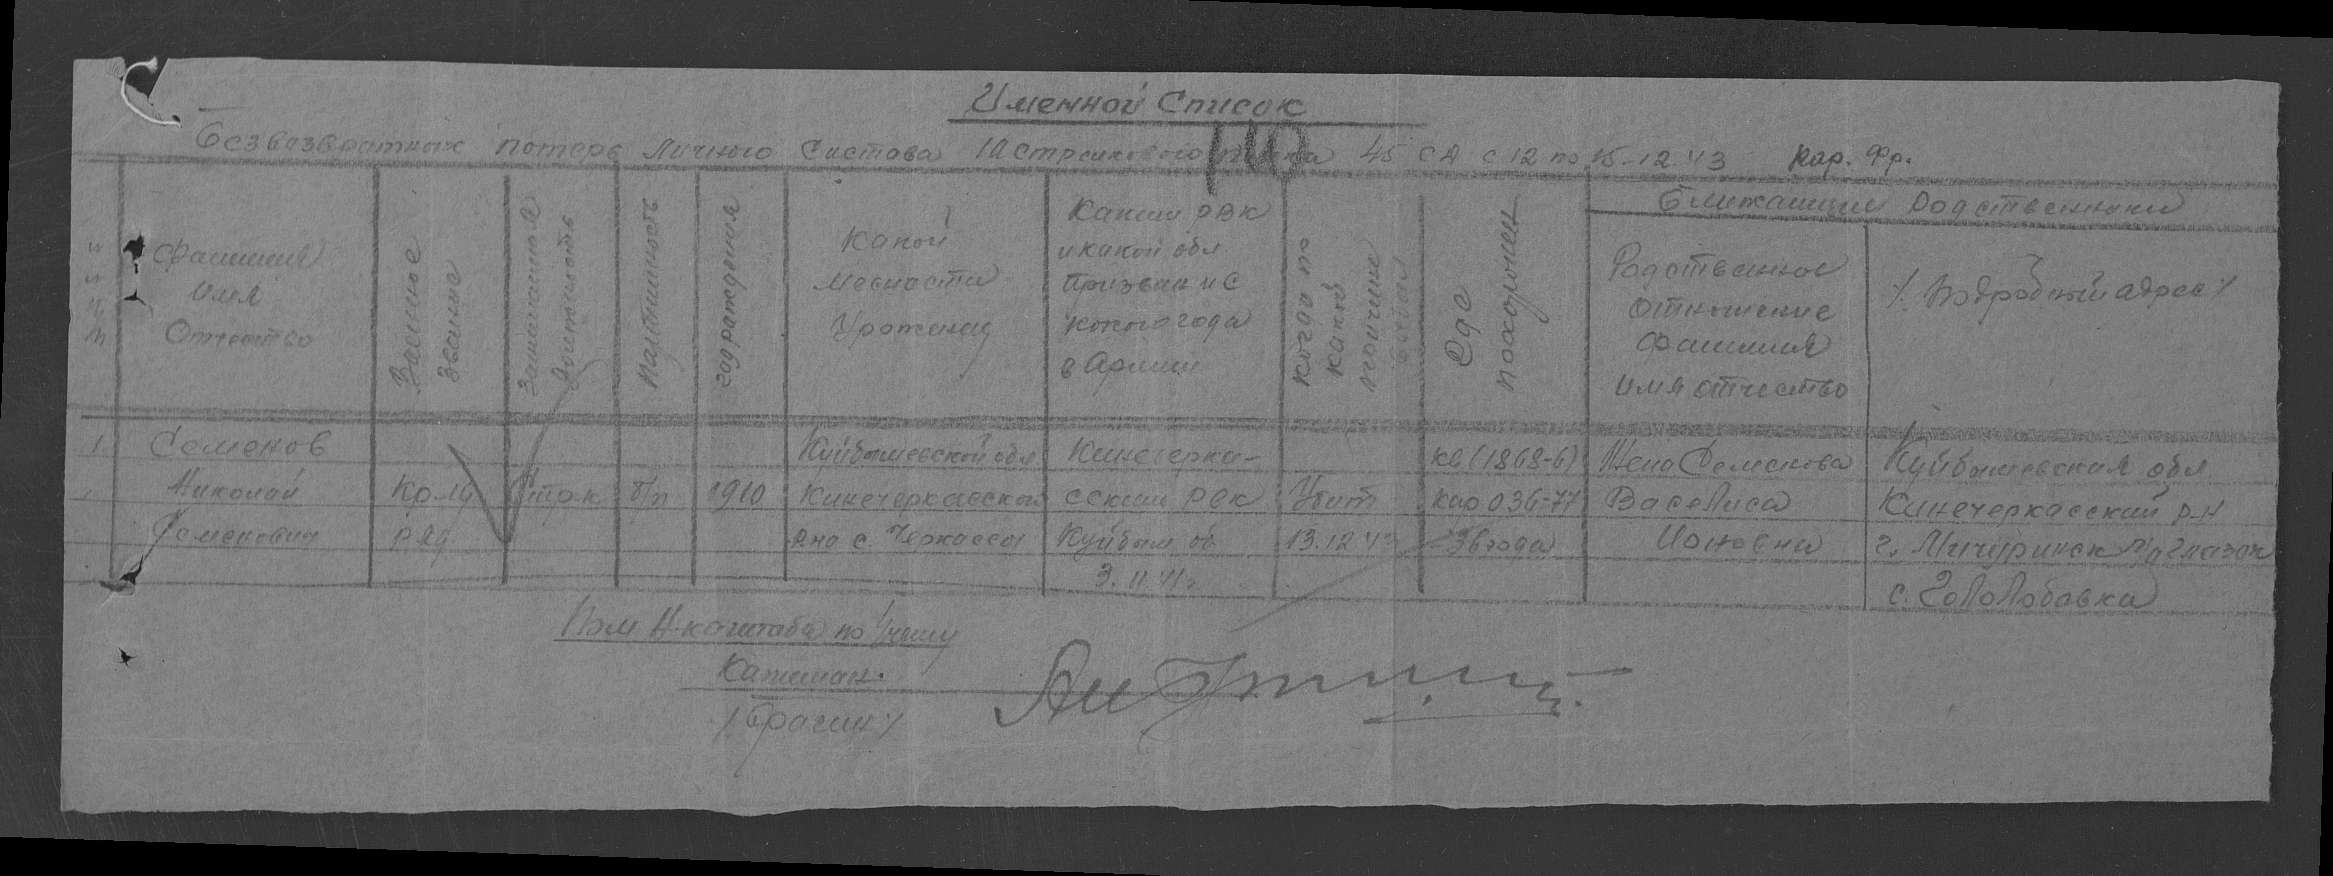 Именной Список
Безвозвратных потерь Личного Состава 10 Стрелкового полка 45 СД с 12 по 15-12-43 Кар. Фр.
110
Фамилия
Имя
Отчество
Военное
звание
Занимаемая
должность
Партийность
год рождения
Какой
месности
Уроженец
Каким РВК
и какой обл
призван и с
какого года
в Армии
Когда и по
какой
причине
выбыл
Где
похоронен
Ближайшие Родственники
Родственное
отношение
фамилия
имя отчество
/. Подробный адрес /
1. Семенов
Николай
Семенович
Кр-ц
ряд
Стр-к
б/п
1910
Куйбышевской обл
Кинечеркасской
р-на с. Черкассы
Кинечерка-
сским РВК
Куйбыш об
3.11.41г
Убит
13.12.43
Кв (1868-б)
Кар 036-77
-36 года
Жена Семенова
Васелиса
Ионовна
Куйбышевская обл
Кинечеркасский р-н
г. Мичуринск п/о Глазок
с. Гололобовка
Пом Н-ка штаба по Учету
Капитан.
/ Брагин /